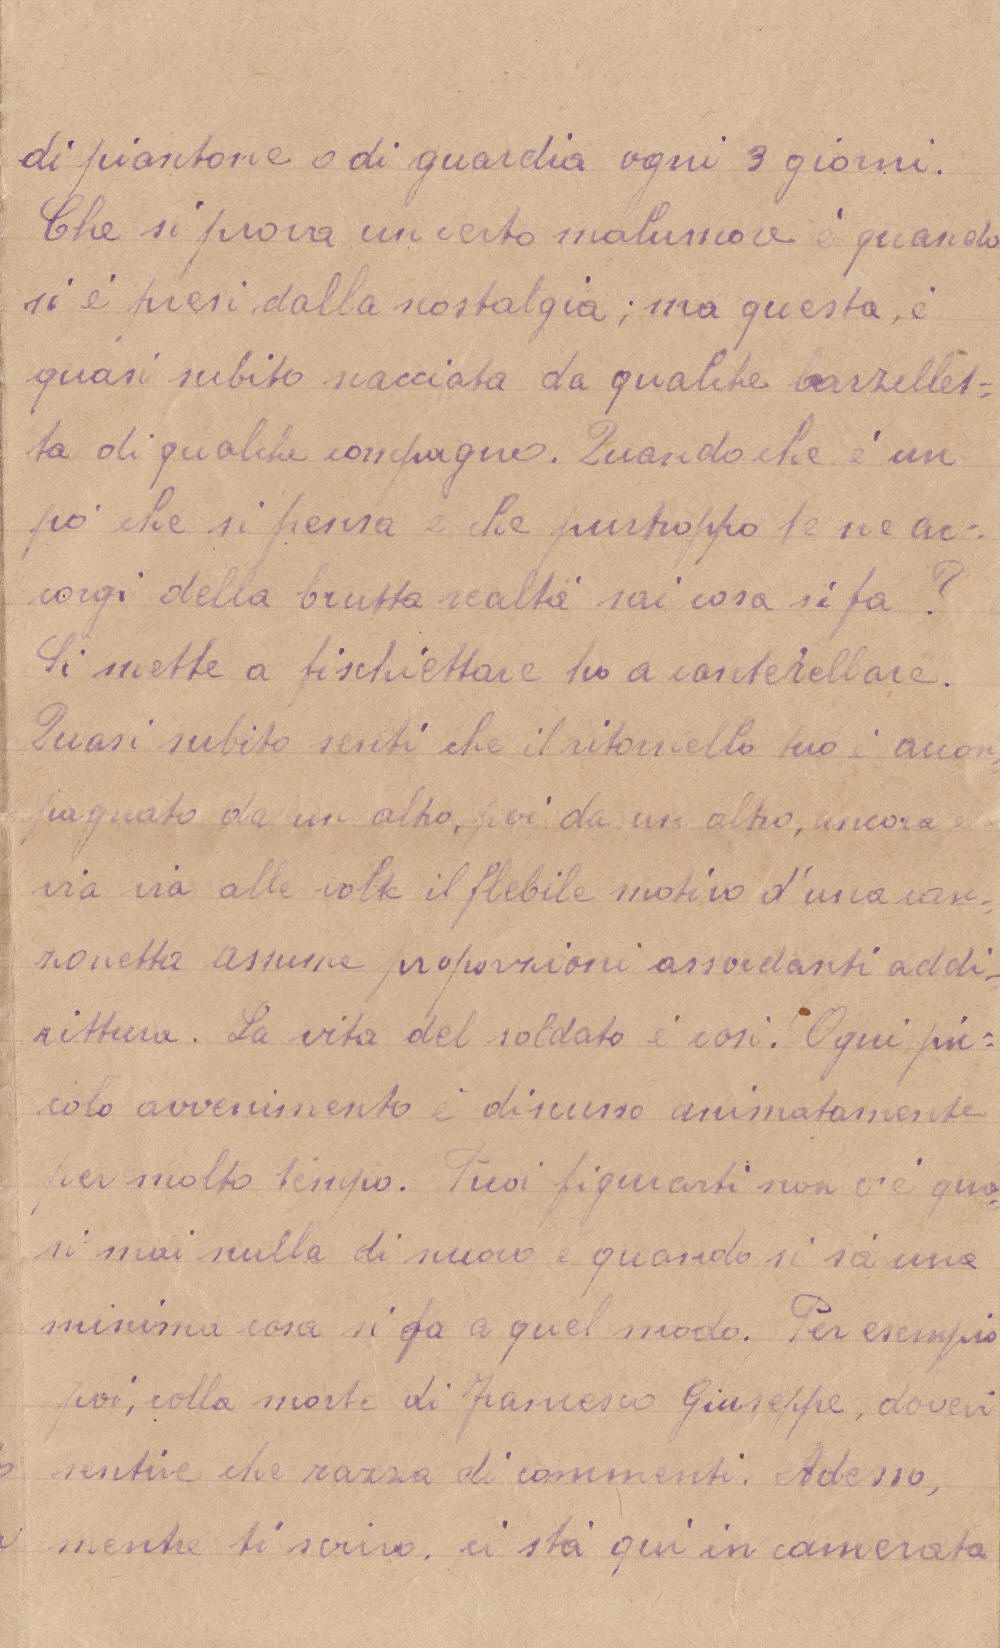 di piantone o di guardia ogni 3 giorni.
Che si prova un certo malumore è quando
si è presi dalla nostalgia; ma questa, è
quasi subito scacciata da qualche barzellet=
ta di qualche compagno. Quando che è un
po' che si pensa e che purtroppo te ne ac-
corgi della brutta realtà sai cosa si fa?
Si mette a fischiettare ho a canterellare.
Quasi subito senti che il ritornello tuo è accom
pagnato da un altro, poi da un altro, ancora e
via via alle volte il flebile motivo d'una can=
zonetta assume proporzioni assordanti addi=
rittura. La vita del soldato è così! Ogni pic=
colo avvenimento è discusso animatamente
per molto tempo. Puoi figurarti non c'è qua=
si mai nulla di nuovo e quando si sà una
minima cosa si fa a quel modo. Per esempio
poi, colla morte di Francesco Giuseppe, dovevi
sentire che razza di commenti. Adesso,
mentre ti scrivo, ci stà qui in camerata